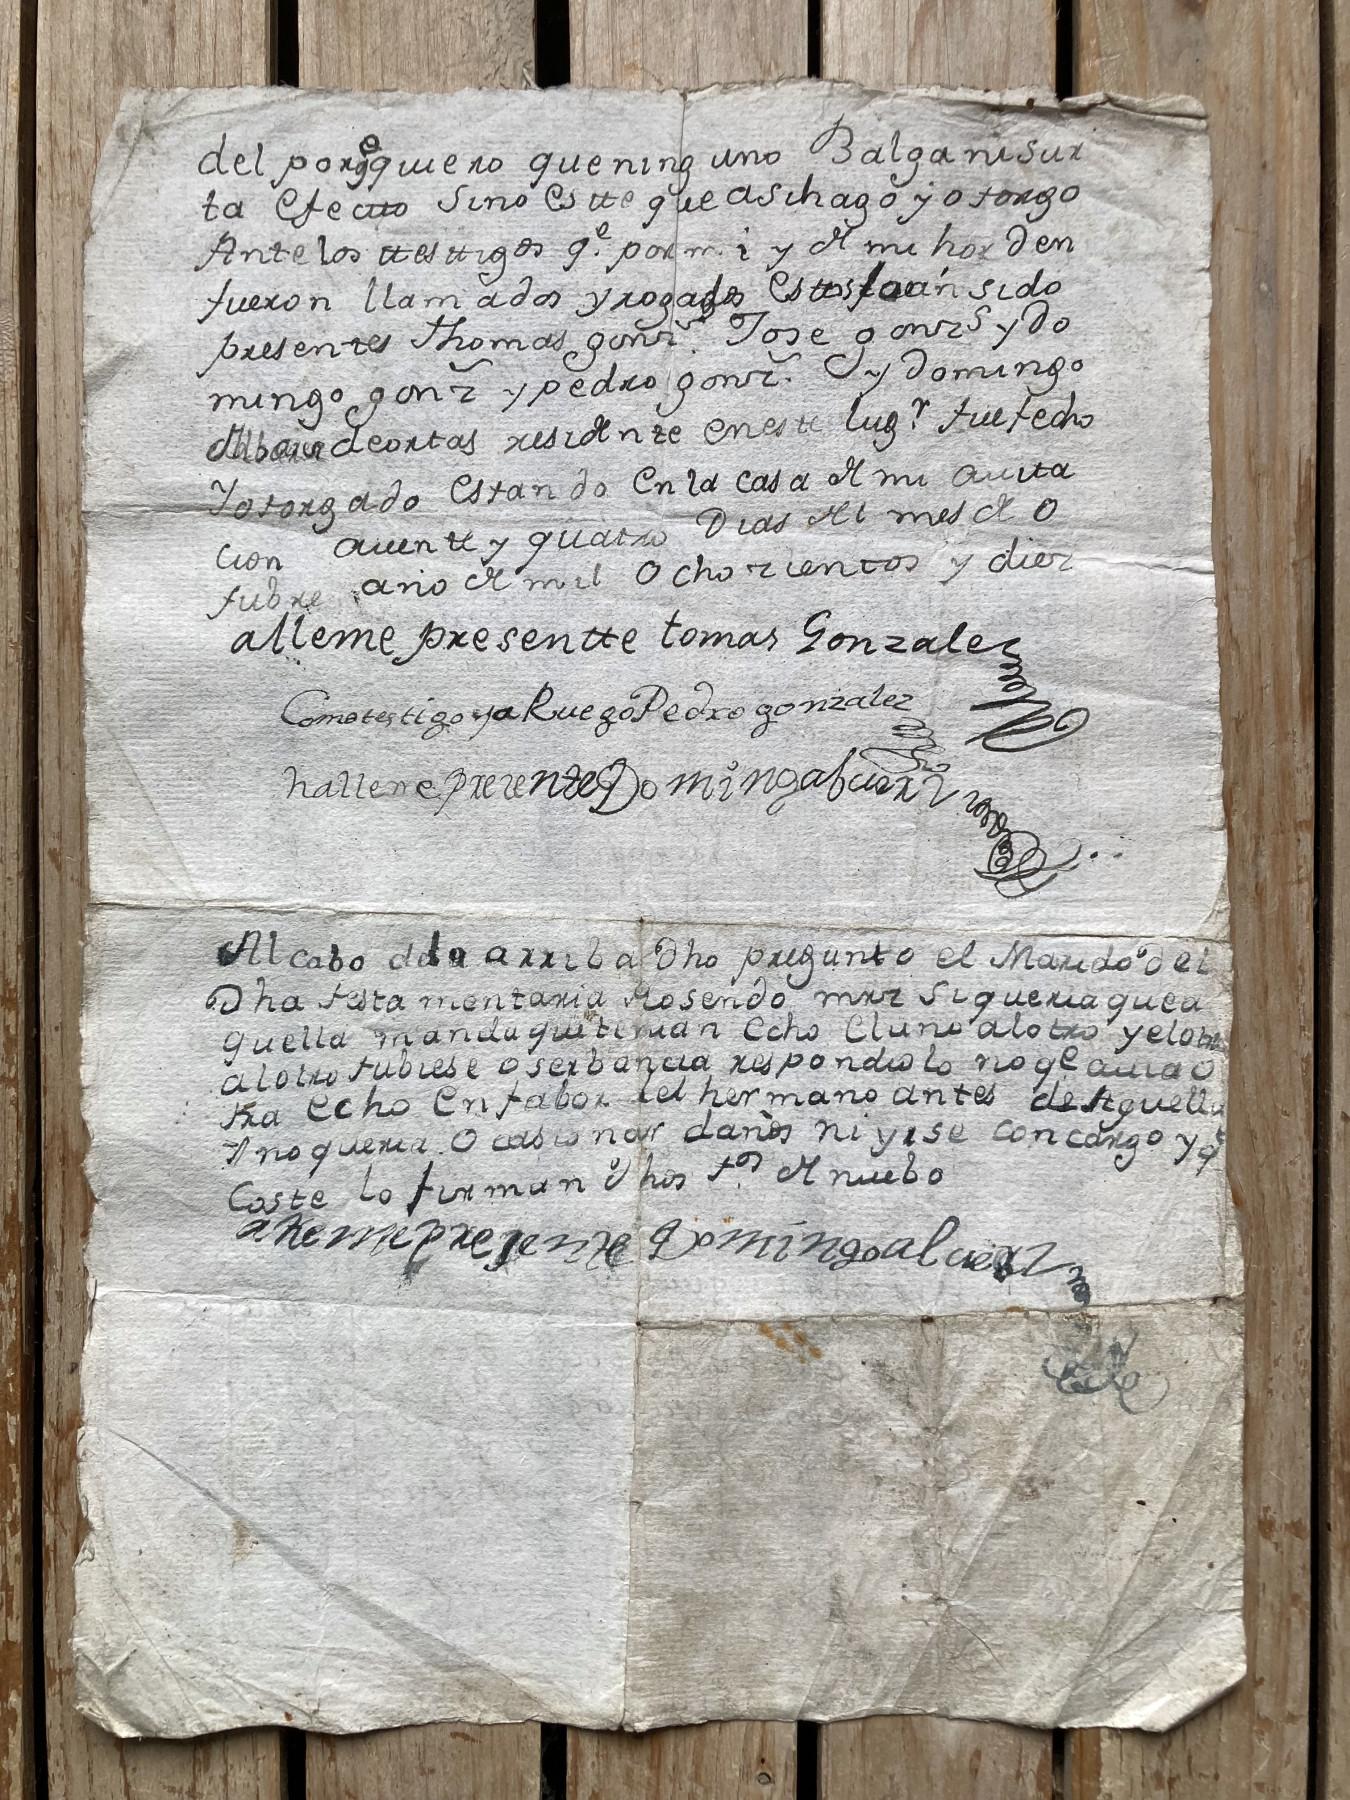 del porqe quiero que ninguno Balga ni sur
ta Efectto Sino Estte que asi hago y otorgo
Ante los ttesttigos q.e por mi y de mi horden
fueron llamados y rogados Esttos fueran sido
presentes thomas gonrz. Jose gonrzs y do
mingo gonrz y pedro gonrz. y domingo
de ortas residente en estte lugr fue fecho
Y otorgado Estando En la casa de mi avita
cion a veintte y quatro Dias del mes de O
tubre año de mil Ochozientos y diez
alleme presentte tomas Gonzalez
Como testigo y a Ruego Pedro gonzalez
halleme prezente Domingo
Al cabo de lo arriba Dho pregunto el Marido del
Dha testamentaria Rosendo mrz si queria que a
quella manda que tenian Echo El uno al otro y el otro
al otro tubiese oserbancia respondio lo no qe avia o
tra Echo En fabor del hermano antes de Aquella
Y no queria Ocasionar daños ni yrse con cargo y qe
Coste lo firman dhos tos de nuebo
alleme presente Domingo